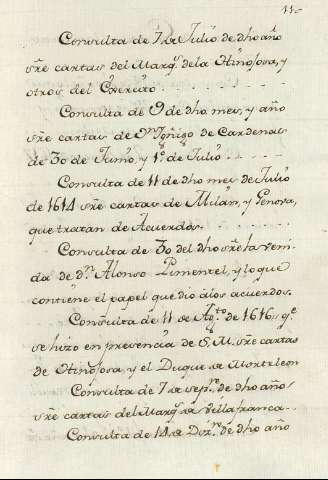 11
Consulta de 7 de Julio de dho año
sre cartas del Marqs. de la Hinojosa, y
otros del Exercito. . . . . . . .
Consulta de 9 de dho mes, y año
sre cartas de Dn. Iñigo de Cardenas
de 30 de Junio, y 1º. de Julio . . . . .
Consulta de 11 de dho mes de Julio
de 1614 sre cartas de Milán, y Genova,
que tratan de Acuerdos. . . . . . .
Consulta de 30 del dho sre la veni-
da de dn. Alonso Pimentel, y lo que
contiene el papel que dio a los acuerdos.
Consulta de 11 de Agto. de 1616, qe
se hizo en presencia de S. M. sre cartas
de Hinojosa, y el Duque de Monteleon
Consulta de 7 de Sepre. de dho año
sre cartas del Marqs. de Villafranca . .
Consulta de 14 de Dizre. de dho año